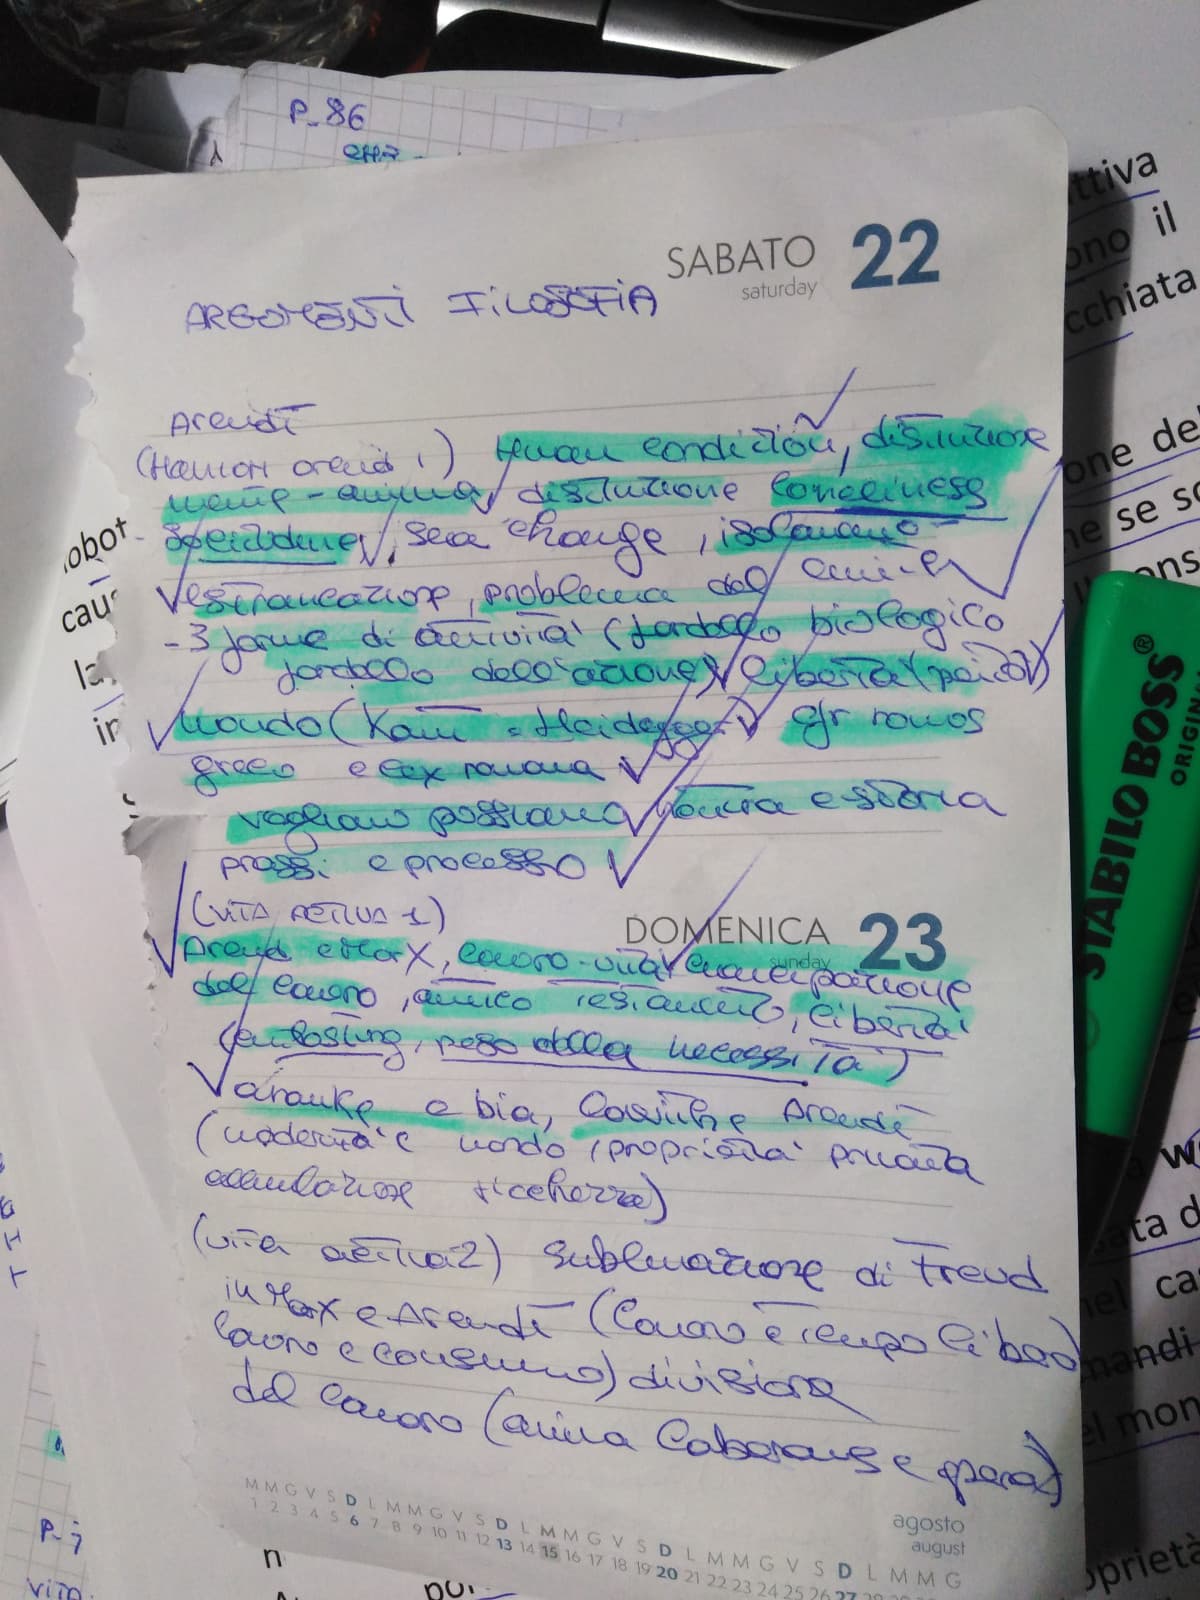 P-86
SABATO 22
saturday
ARGOMENTI FILOSOFIA
Arendt
(Hannah arendt 1) Human condition, distinzione
mente-anima, distinzione loneliness
- solitudine, sea change, isolamento -
estraneazione, problema del
- 3 forme di attività (fardello biologico
fardello dell'azione) libertà (polis)
Mondo (Kant - Heidegger) gr nomos
greco e lex romana
vogliamo possiamo, storia
prassi e processo
(VITA ACTIVA 1)
DOMENICA 23
sunday
Arend e Marx, lavoro-vita, emancipazione
del lavoro, animco, libertà
(enlosting, peso della necessità)
ananke e bia, Arendt
(modernità e mondo, proprietà privata
ricchezza)
(vita activa 2) Sublimazione di Freud
in Marx e Arendt (lavoro e tempo libero
lavoro e consumo) divisione
del lavoro (anima laborans e opera)
M M G V S D L M M G V S D L M M G V S D L M M G V S D L M M G
1 2 3 4 5 6 7 8 9 10 11 12 13 14 15 16 17 18 19 20 21 22 23 24 25 26 27
agosto
august
STABILO BOSS®
ORIGIN
ttiva
ono il
cchiata
one de
ne se so
obot
cau
la
in
ata d
nel ca
mandi
el mon
oprietà
n
por
P-
VITA